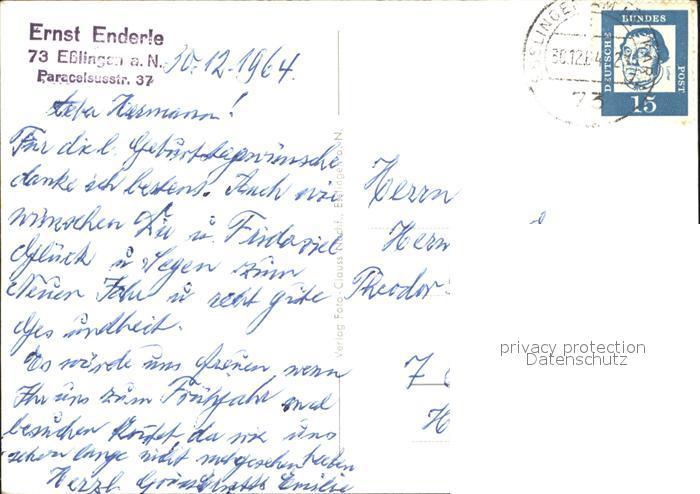 Ernst Enderle
73 Eßlingen a. N.
Paracelsusstr. 37
30.12.1964.
Lieber Hermann!
Für die l. Geburtstagswünsche
danke ich bestens. Auch wir
wünschen Dir u. Frida viel
Glück u. Segen zum
Neuen Jahr u. recht gute
Gesundheit.
Es würde uns freuen, wenn
Ihr uns zum Frühjahr mal
besuchen da wir uns
schon lange nicht mehr gesehen haben
Herzl. Emilie
Verlag Foto-Clauss Nachf., Esslingen a. N.
Herrn
Herm
Theodor
7
H
30.12.64
73
DEUTSCHE
BUNDES
POST
15
privacy protection
Datenschutz